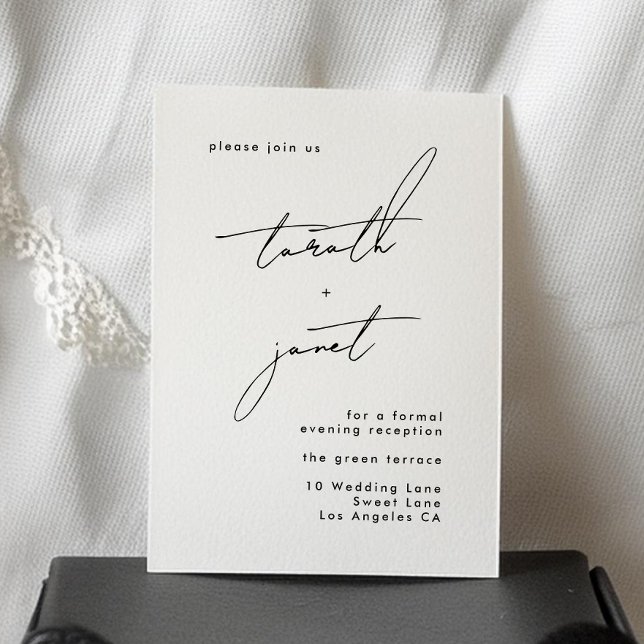 please join us
tarath
+
janet
for a formal
evening reception
the green terrace
10 Wedding Lane
Sweet Lane
Los Angeles CA